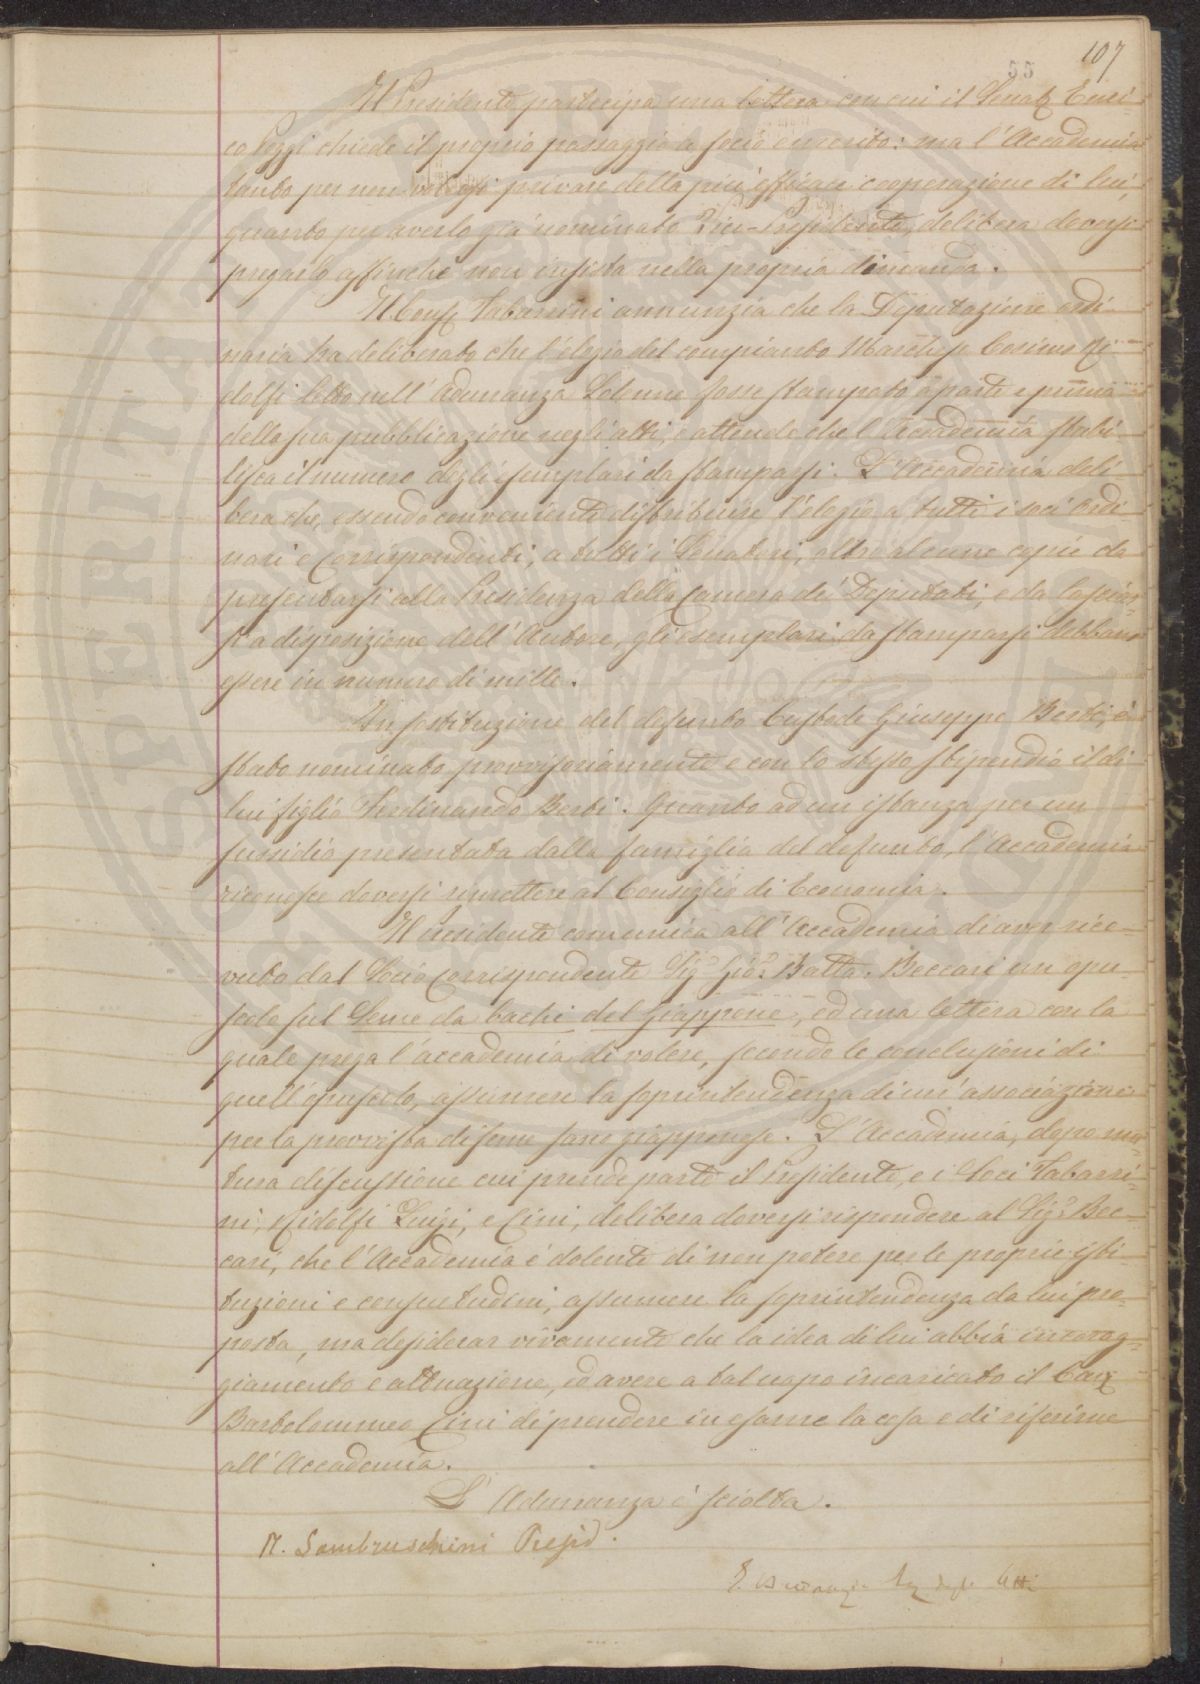 107
55
Il Presidente partecipa una lettera con cui il Senat. Enri-
co Poggi chiede il proprio passaggio a socio emerito: ma l'Accademia
tanto per non volersi privare della più efficace cooperazione di lui,
quanto per averlo già nominato Vice-Presidente, delibera doversi
pregarlo affinchè non insista nella propria dimanda.
Il Cons. Tabarrini annunzia che la Deputazione ordi-
naria ha deliberato che l'elogio del compianto March. Cosimo Ri-
dolfi letto nell'Adunanza Solenne fosse stampato a parte e prima
della sua pubblicazione negli atti, e attende che l'Accademia stabi-
lisca il numero degli esemplari da stamparsi. L'Accademia deli-
bera che, essendo conveniente distribuire l'elogio a tutti i soci Ordi-
nari e Corrispondenti, a tutti i Senatori, oltre alcune copie da
presentarsi alla Presidenza della Camera de' Deputati, e da lasciar-
si a disposizione dell'Autore, gli esemplari da stamparsi debbano
essere in numero di mille.
In sostituzione del defunto Custode Giuseppe Berti, è
stato nominato provvisoriamente e con lo stesso stipendio il di
lui figlio Ferdinando Berti. Quanto ad un istanza per un
sussidio presentata dalla famiglia del defunto, l'Accademia
riconosce doversi rimettere al Consiglio di Economia.
Il Presidente comunica all'Accademia di aver rice-
vuto dal Socio Corrispondente Sig. Gio. Batta. Beccari un opu-
scolo sul Seme da bachi del Giappone, ed una lettera con la
quale prega l'accademia di volere, secondo le conclusioni di
quell'opuscolo, assumere la soprintendenza di un'associazione
per la provvista di seme sano giapponese. L'Accademia, dopo ma-
tura discussione cui prende parte il Presidente, e i Soci Tabarri-
ni, Ridolfi Luigi, e Cini, delibera doversi rispondere al Sig. Bec-
cari, che l'Accademia è dolente di non potere per le proprie isti-
tuzioni e consuetudini, assumere la soprintendenza da lui pro-
posta, ma desiderar vivamente che la idea di lui abbia incorag-
giamento e attuazione, ed avere a tal uopo incaricato il Cav.
Bartolommeo Cini di prendere in esame la cosa e di riferirne
all'Accademia.
L'Adunanza è sciolta.
R. Lambruschini Presid.
degli Atti